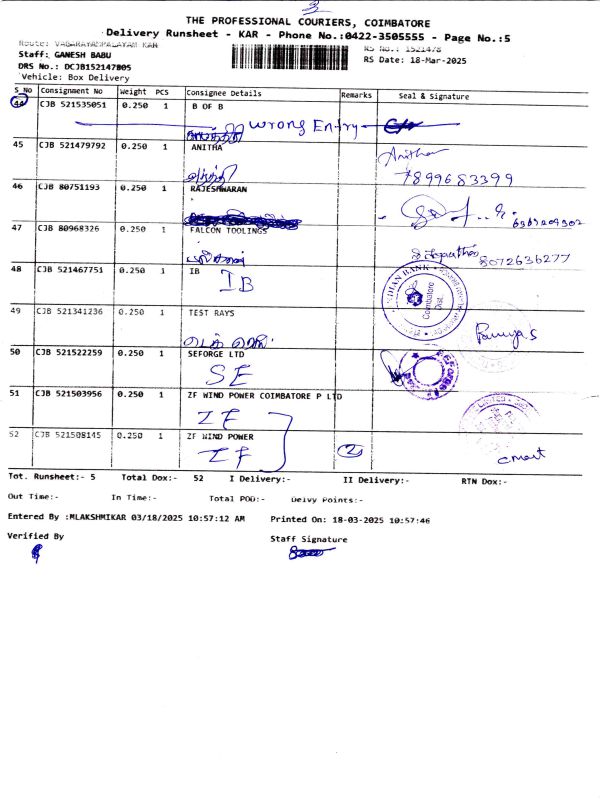 3
THE PROFESSIONAL COURIERS, COIMBATORE
Delivery Runsheet - KAR - Phone No.:0422-3505555 - Page No.:5
Route: VAGARAYAMPALAYAM KAR
RS No.: 1521478
Staff: GANESH BABU
RS Date: 18-Mar-2025
DRS No.: DCJB152147805
Vehicle: Box Delivery
S_No Consignment No Weight PCS Consignee Details Remarks Seal & Signature
44 CJB 521535051 0.250 1 B OF B
Wrong Entry
45 CJB 521479792 0.250 1 ANITRA
Anitha
7899683399
46 CJB 80751193 0.250 1 RAJESHWARAN
47 CJB 80968326 0.250 1 FALCON TOOLINGS
8072636277
48 CJB 521467751 0.250 1 IB
IB
INDIAN BANK
Coimbatore
Dist.
49 CJB 521341236 0.250 1 TEST RAYS
Ramya S
50 CJB 521522259 0.250 1 SEFORGE LTD
SE
51 CJB 521503956 0.250 1 ZF WIND POWER COIMBATORE P LTD
ZF
52 CJB 521508145 0.250 1 ZF WIND POWER
ZF
2
Tot. Runsheet:- 5 Total Dox:- 52 I Delivery:- II Delivery:- RTN Dox:-
Out Time:- In Time:- Total POD:- Delvy Points:-
Entered By :MLAKSHMIKAR 03/18/2025 10:57:12 AM Printed On: 18-03-2025 10:57:46
Verified By
Staff Signature